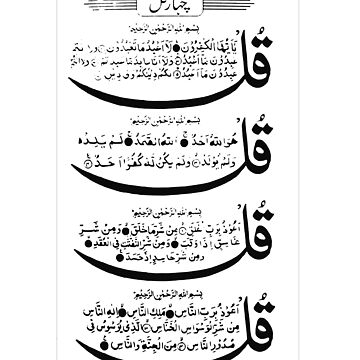 چہار قل
بِسْمِ اللهِ الرَّحْمٰنِ الرَّحِيْمِ
قُلْ
يٰاَيُّهَا الْكٰفِرُوْنَ لَا اَعْبُدُ مَا تَعْبُدُوْنَ
عٰبِدُوْنَ مَا اَعْبُدُ وَلَا اَنَا عَابِدٌ
عٰبِدُوْنَ مَا اَعْبُدُ لَكُمْ دِيْنُكُمْ وَلِيَ دِيْنِ
بِسْمِ اللهِ الرَّحْمٰنِ الرَّحِيْمِ
قُلْ
هُوَ اللهُ اَحَدٌ اَللهُ الصَّمَدُ لَمْ يَلِدْ
وَلَمْ يُوْلَدْ وَلَمْ يَكُنْ لَهٗ كُفُوًا اَحَدٌ
بِسْمِ اللهِ الرَّحْمٰنِ الرَّحِيْمِ
قُلْ
اَعُوْذُ بِرَبِّ الْفَلَقِ مِنْ شَرِّ مَا خَلَقَ وَمِنْ شَرِّ
غَاسِقٍ اِذَا وَقَبَ وَمِنْ شَرِّ النَّفّٰثٰتِ فِي الْعُقَدِ
وَمِنْ شَرِّ حَاسِدٍ اِذَا حَسَدَ
بِسْمِ اللهِ الرَّحْمٰنِ الرَّحِيْمِ
قُلْ
اَعُوْذُ بِرَبِّ النَّاسِ مَلِكِ النَّاسِ اِلٰهِ النَّاسِ
مِنْ شَرِّ الْوَسْوَاسِ الْخَنَّاسِ الَّذِيْ يُوَسْوِسُ فِيْ
صُدُوْرِ النَّاسِ مِنَ الْجِنَّةِ وَالنَّاسِ